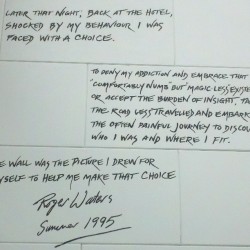 LATER THAT NIGHT, BACK AT THE HOTEL,
SHOCKED BY MY BEHAVIOUR I WAS
FACED WITH A CHOICE.
TO DENY MY ADDICTION AND EMBRACE THAT
"COMFORTABLY NUMB BUT MAGIC LESS EXISTE
OR ACCEPT THE BURDEN OF INSIGHT, TA
THE ROAD LESS TRAVELLED AND EMBARK
THE OFTEN PAINFUL JOURNEY TO DISCOV
WHO I WAS AND WHERE I FIT.
E WALL WAS THE PICTURE I DREW FOR
YSELF TO HELP ME MAKE THAT CHOICE
Roger Waters
Summer 1995